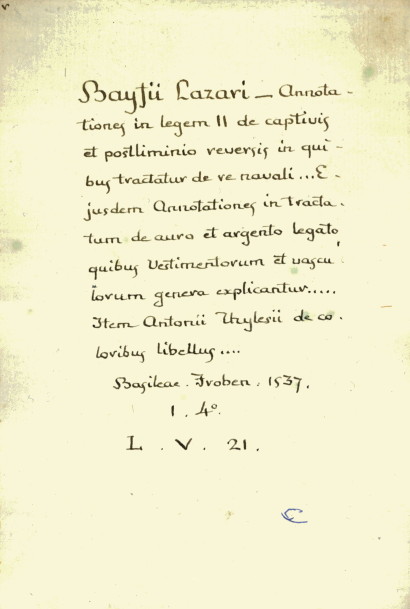 Bayfii Lazari — Annota-
tiones in legem II de captivis
et postliminio reversis in qui-
bus tractatur de re navali...E-
jusdem Annotationes in tracta-
tum de auro et argento legato
quibus Vestimentorum et vascu-
lorum genera explicantur.....
Item Antonii Thylesii de co-
loribus libellus....
Basileae. Froben. 1537.
1. 4º.
L. V. 21.